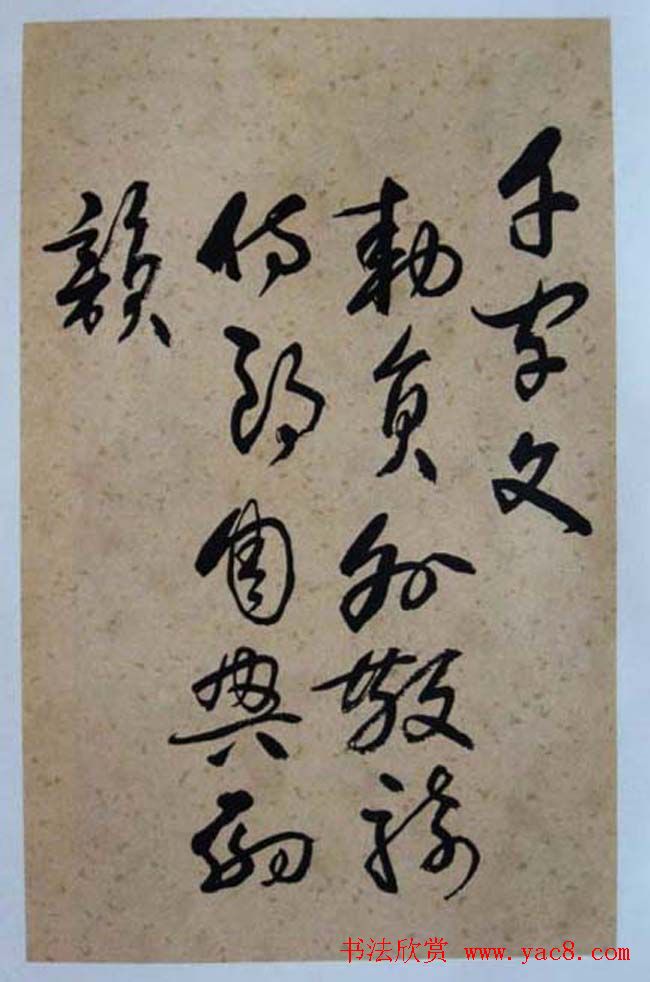 千字文
勅員外散騎
侍郎周興嗣
韻
书法欣赏 www.yac8.com